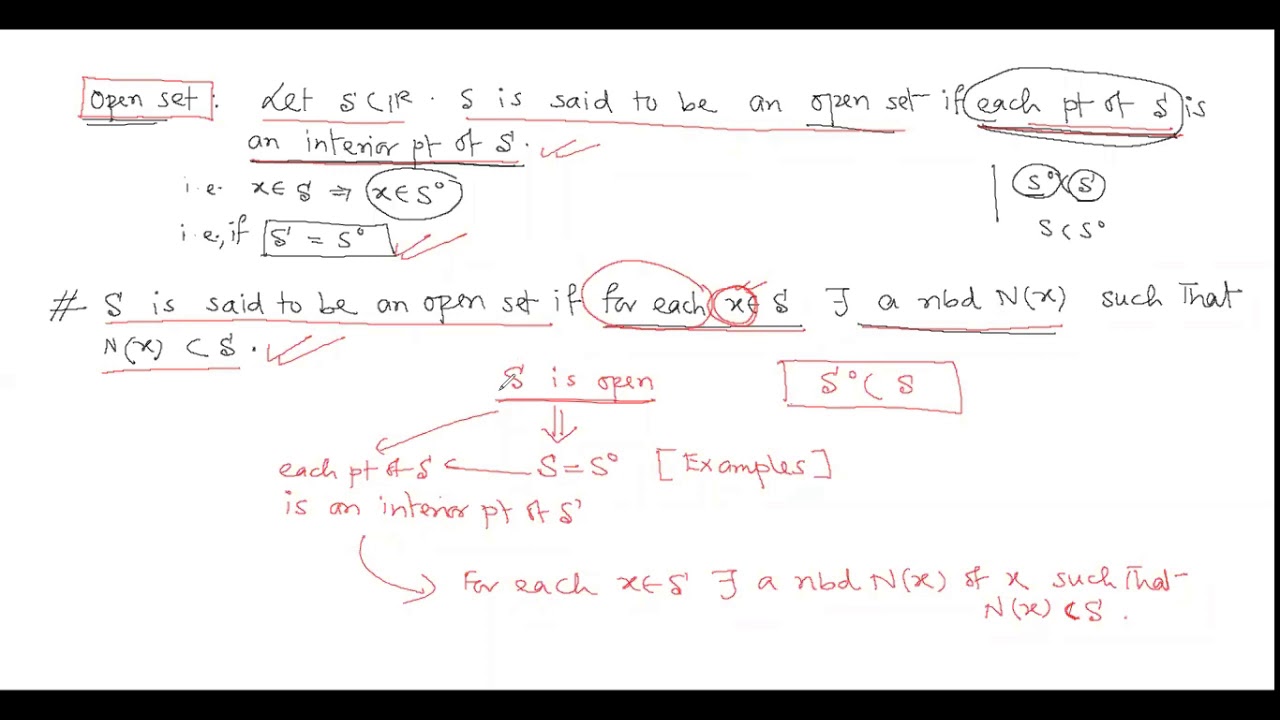 Open set : Let S ⊂ ℝ. S is said to be an open set if each pt of S is
an interior pt of S.
i.e. x ∈ S ⇒ x ∈ S°
S° ⊂ S
S ⊂ S°
i.e., if S = S°
# S is said to be an open set if for each x ∈ S ∃ a nbd N(x) such that
N(x) ⊂ S.
S is open
S° ⊂ S
⇓
each pt of S ← S = S° [Examples]
is an interior pt of S
For each x ∈ S ∃ a nbd N(x) of x such that
N(x) ⊂ S.